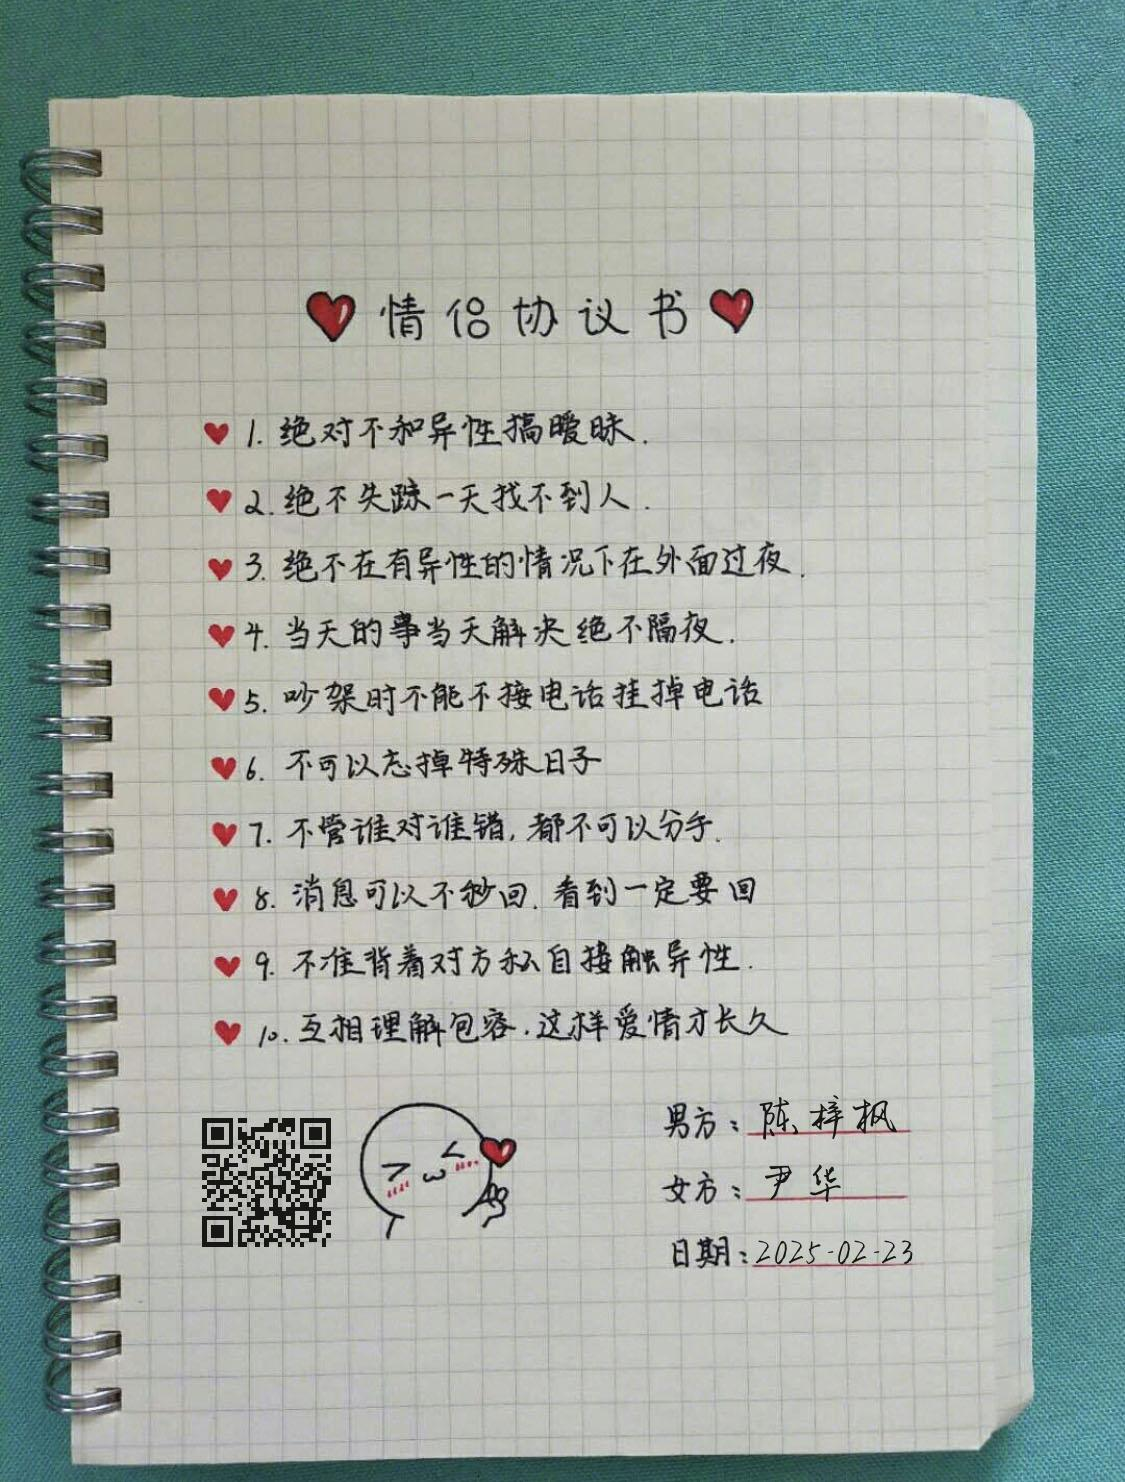 情侣协议书
1. 绝对不和异性搞暧昧.
2. 绝不失踪一天找不到人.
3. 绝不在有异性的情况下在外面过夜.
4. 当天的事当天解决绝不隔夜.
5. 吵架时不能不接电话挂掉电话
6. 不可以忘掉特殊日子
7. 不管谁对谁错, 都不可以分手.
8. 消息可以不秒回. 看到一定要回
9. 不准背着对方私自接触异性.
10. 互相理解包容. 这样爱情才长久
男方: 陈梓枫
女方: 尹华
日期: 2025-02-23